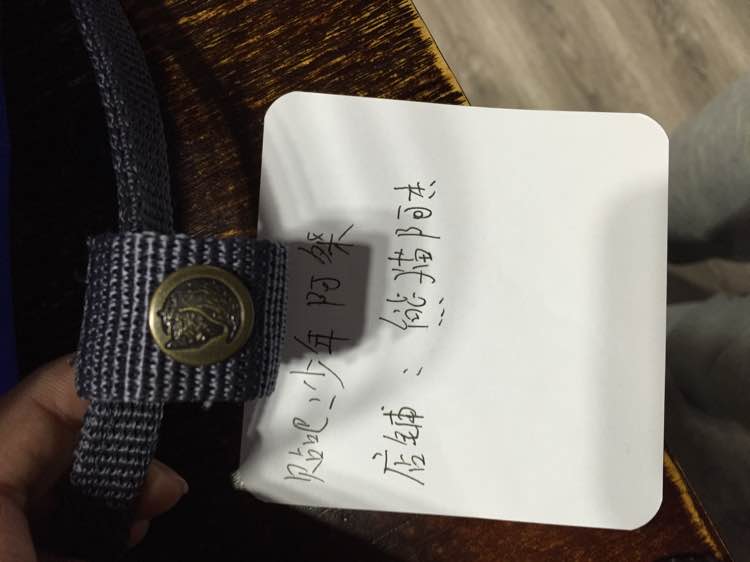 贴吧：少年阿燊
店铺：熊猫阿杰